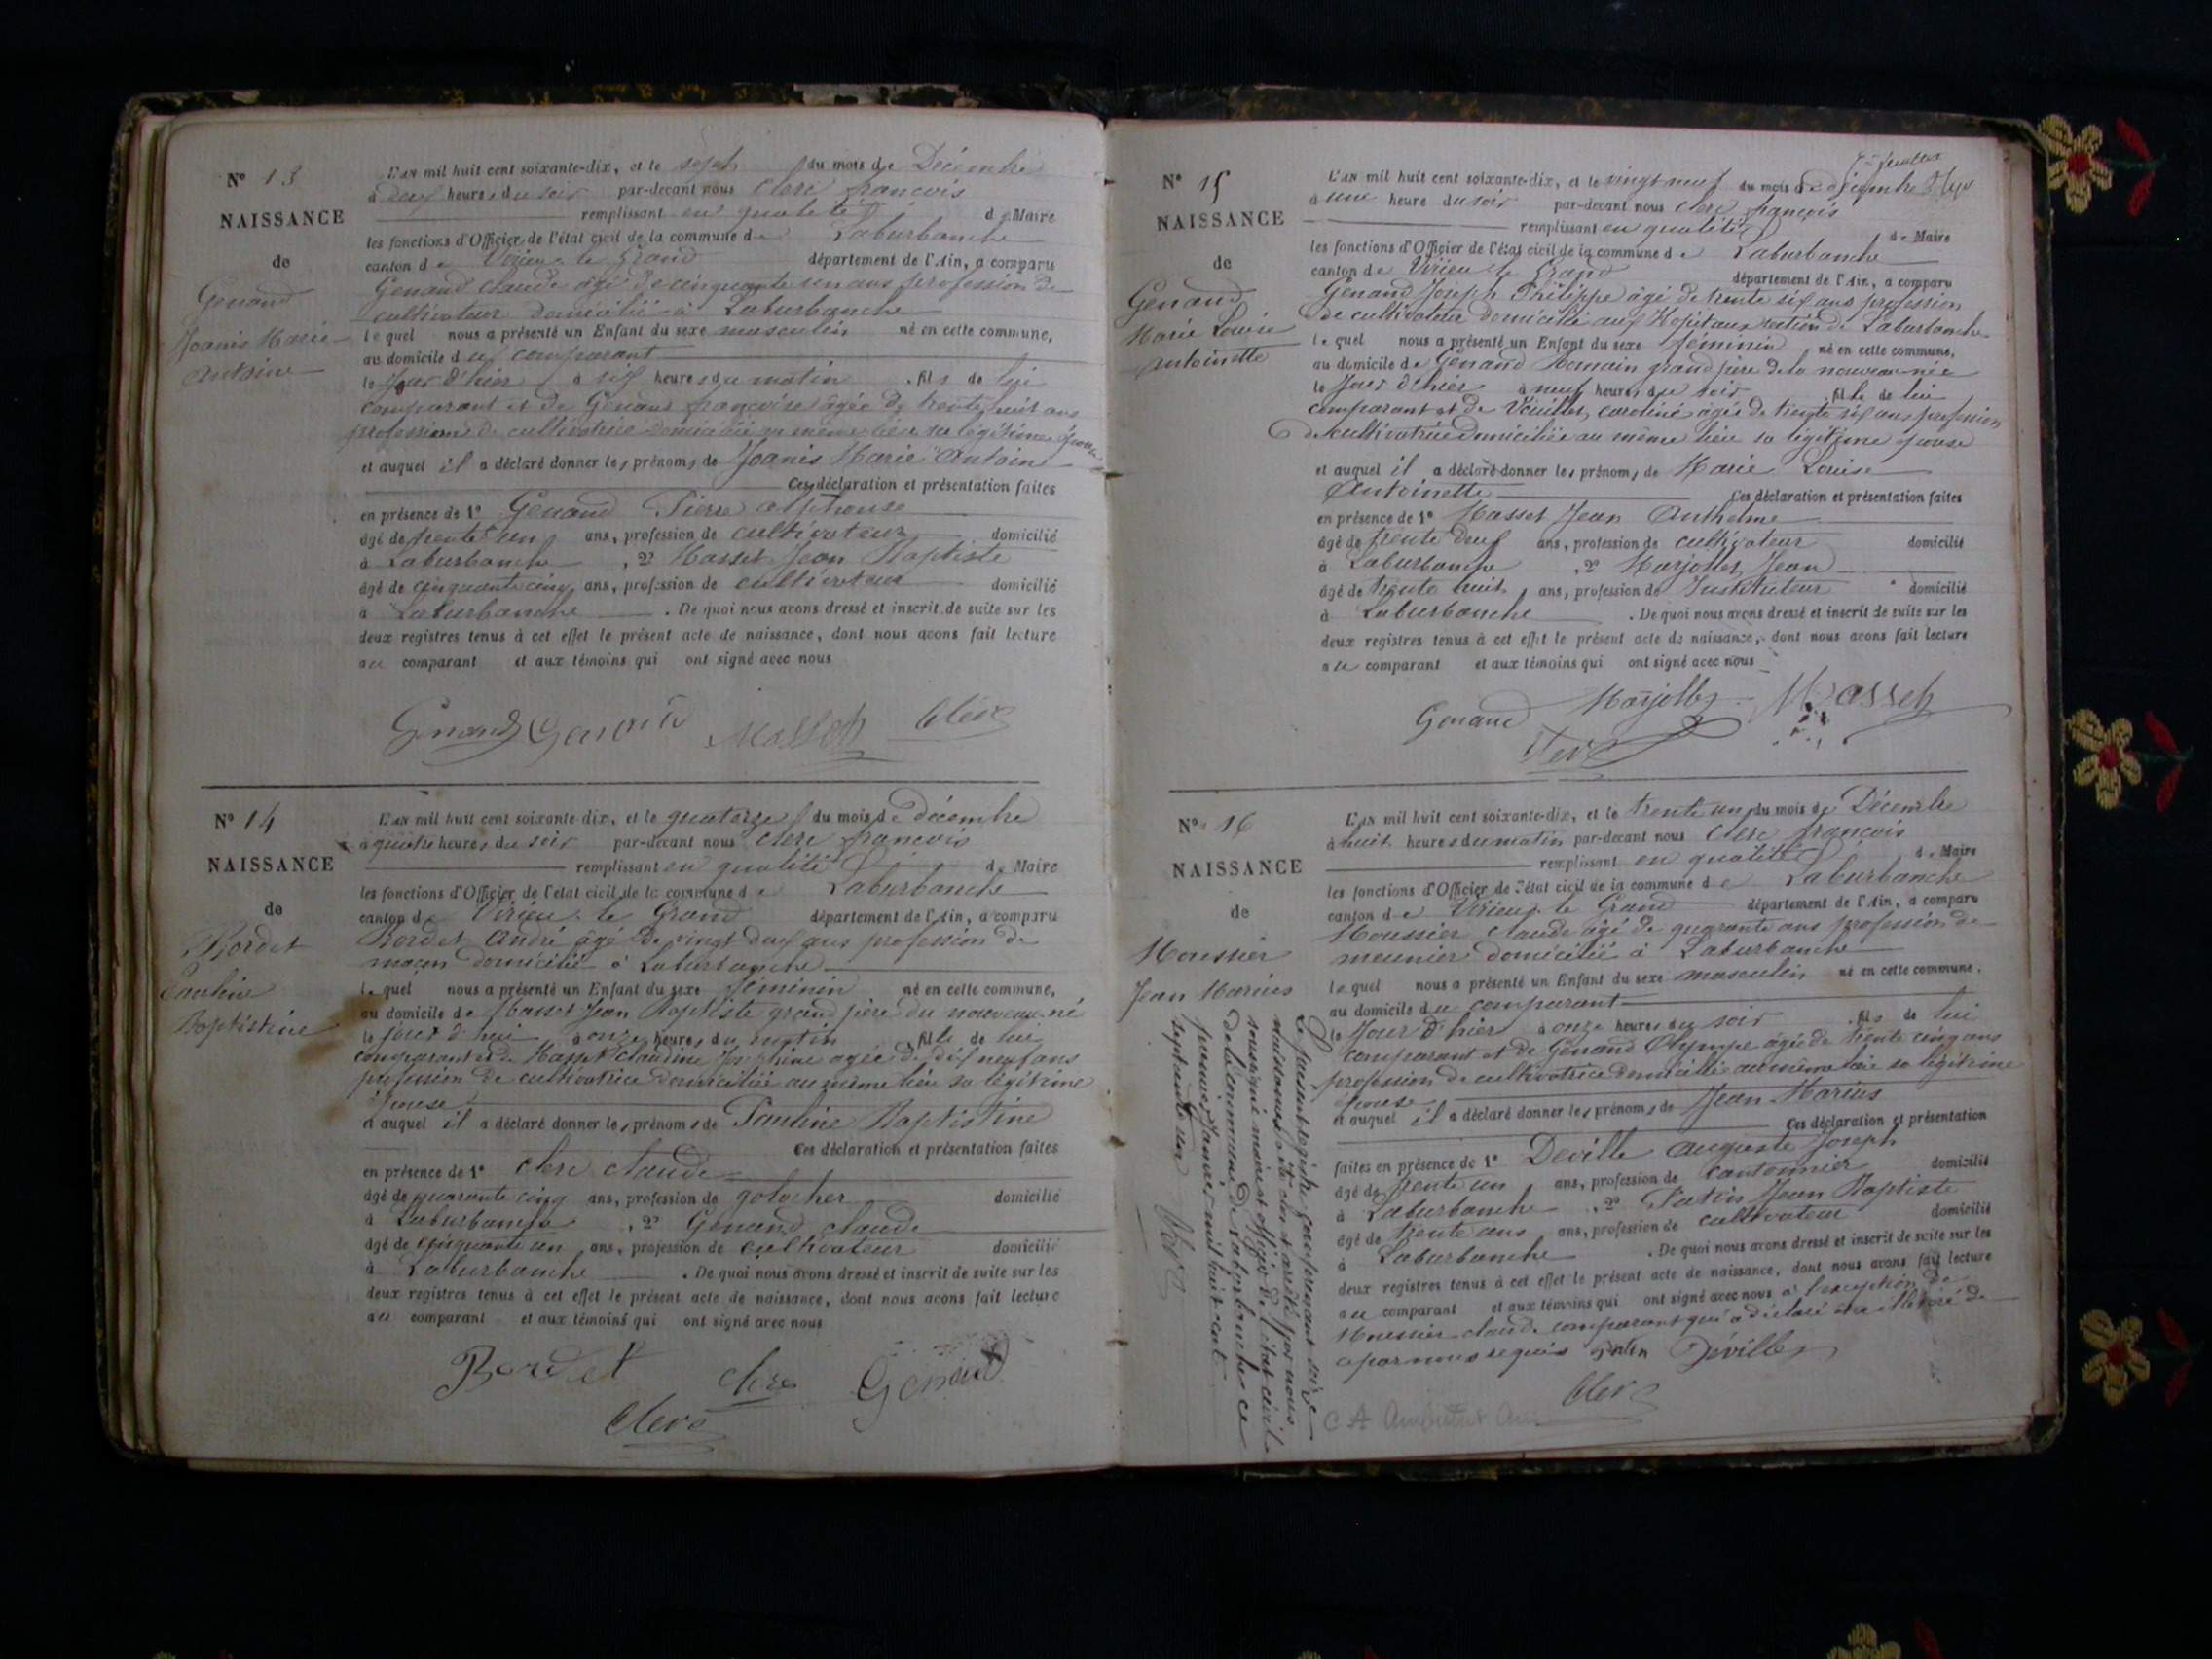 N° 13
NAISSANCE
de
Genand
Joanis Marie
Antoine
L'AN mil huit cent soixante-dix, et le sept du mois de Décembre
à deux heures du soir par-devant nous Clerc françois
remplissant en qualité de Maire
les fonctions d'Officier de l'état civil de la commune de Laburbanche
canton de Virieu le Grand département de l'Ain, a comparu
Genand Claude âgé de cinquante un ans profession de
cultivateur domicilié à Laburbanche
lequel nous a présenté un Enfant du sexe masculin né en cette commune,
au domicile du comparant
le Jour d'hier à six heures du matin . fils de lui
comparant et de Genand françoise âgée de trente huit ans
profession de cultivatrice domiciliée au même lieu sa légitime épouse
et auquel il a déclaré donner les prénoms de Joanis Marie Antoine
Ces déclaration et présentation faites
en présence de 1° Genand Pierre Alphonse
âgé de trente un ans, profession de cultivateur domicilié
à Laburbanche , 2° Masset Jean Baptiste
âgé de cinquante cinq ans, profession de cultivateur domicilié
à Laburbanche . De quoi nous avons dressé et inscrit de suite sur les
deux registres tenus à cet effet le présent acte de naissance, dont nous avons fait lecture
au comparant et aux témoins qui ont signé avec nous
Genand Genand Masset Clerc
N° 14
NAISSANCE
de
Bordet
Pauline
Baptistine
L'AN mil huit cent soixante-dix, et le quatorze du mois de décembre
à quatre heures du soir par-devant nous Clerc françois
remplissant en qualité de Maire
les fonctions d'Officier de l'état civil de la commune de Laburbanche
canton de Virieu le Grand département de l'Ain, a comparu
Bordet André âgé de vingt deux ans profession de
maçon domicilié à Laburbanche
lequel nous a présenté un Enfant du sexe féminin né en cette commune,
au domicile de Masset Jean Baptiste grand père du nouveau né
le jour d'hui à onze heures du matin . fille de lui
comparant et de Masset Claudine Josephine âgée de dix neuf ans
profession de cultivatrice domiciliée au même lieu sa légitime
épouse
et auquel il a déclaré donner les prénoms de Pauline Baptistine
Ces déclaration et présentation faites
en présence de 1° Clerc Claude
âgé de quarante cinq ans, profession de domicilié
à Laburbanche , 2° Genand Claude
âgé de cinquante un ans, profession de cultivateur domicilié
à Laburbanche . De quoi nous avons dressé et inscrit de suite sur les
deux registres tenus à cet effet le présent acte de naissance, dont nous avons fait lecture
au comparant et aux témoins qui ont signé avec nous
Bordet Clerc Genand
Clerc
N° 15
NAISSANCE
de
Genand
Marie Louise
Antoinette
feuillet
L'AN mil huit cent soixante-dix, et le vingt neuf du mois de décembre
à une heure du soir par-devant nous Clerc françois
remplissant en qualité de Maire
les fonctions d'Officier de l'état civil de la commune de Laburbanche
canton de Virieu le Grand département de l'Ain, a comparu
Genand Joseph Philippe âgé de trente six ans profession
de cultivateur domicilié aux Hopitaux section de Laburbanche
lequel nous a présenté un Enfant du sexe féminin né en cette commune,
au domicile de Genand Romain grand père de la nouveau née
le Jour d'hier à neuf heures du soir . fille de lui
comparant et de Vuillet Caroline âgée de trente six ans profession
de cultivatrice domiciliée au même lieu sa légitime épouse
et auquel il a déclaré donner les prénoms de Marie Louise
Antoinette Ces déclaration et présentation faites
en présence de 1° Masset Jean Anthelme
âgé de trente deux ans, profession de cultivateur domicilié
à Laburbanche , 2° Marjollet Jean
âgé de trente huit ans, profession de Instituteur domicilié
à Laburbanche . De quoi nous avons dressé et inscrit de suite sur les
deux registres tenus à cet effet le présent acte de naissance, dont nous avons fait lecture
au comparant et aux témoins qui ont signé avec nous
Genand Marjollet Masset
Clerc
N° 16
NAISSANCE
de
Moussier
Jean Marius
L'AN mil huit cent soixante-dix, et le trente un du mois de Décembre
à huit heures du matin par-devant nous Clerc françois
remplissant en qualité de Maire
les fonctions d'Officier de l'état civil de la commune de Laburbanche
canton de Virieu le Grand département de l'Ain, a comparu
Moussier Claude âgé de quarante ans profession de
meunier domicilié à Laburbanche
lequel nous a présenté un Enfant du sexe masculin né en cette commune,
au domicile du comparant
le Jour d'hier à onze heures du soir . fils de lui
comparant et de Genand Olympe âgée de trente cinq ans
profession de cultivatrice domiciliée au même lieu sa légitime
épouse
et auquel il a déclaré donner les prénoms de Jean Marius
Ces déclaration et présentation
faites en présence de 1° Deville Auguste Joseph
âgé de trente un ans, profession de cantonnier domicilié
à Laburbanche , 2° Jean Baptiste
âgé de trente ans ans, profession de cultivateur domicilié
à Laburbanche . De quoi nous avons dressé et inscrit de suite sur les
deux registres tenus à cet effet le présent acte de naissance, dont nous avons fait lecture
au comparant et aux témoins qui ont signé avec nous à l'exception de
Moussier Claude comparant qui a déclaré être illétré de
ce par nous requis Deville
Clerc
Le présent registre comprenant seize
naissances a été clos et arrêté par nous
soussigné maire et officier de l'état civil
de la commune de Laburbanche ce
premier Janvier mil huit cent
septante un
Clerc